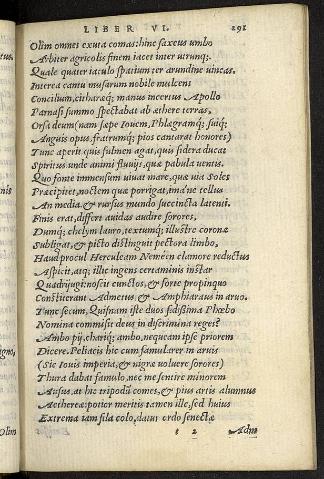 LIBER VI. 291
Olim omnes exuta comas: hinc saxeus umbo
Arbiter agricolis finem iacet inter utrunq;.
Quale quater iaculo spatium, ter arundine vincas.
Interea cantu musarum nobile mulcens
Concilium, citharæq; manus incertus Apollo
Parnasi summo spectabat ab æthere terras,
Orsa deum (nam sæpe Iovem, Phlægramq; suiq;
Anguis opus, fratrumq; pios cantarat honores)
Tunc aperit quis fulmen agat, quis sidera ducat
Spiritus unde animi fluviis, quæ pabula ventis.
Quo fonte immensum vivat mare, quæ via Soles
Præcipitet, noctem quæ porrigat, imá ne tellus
An media, & rursus mundo succincta latenti.
Finis erat, differt avidas audire sorores,
Dumq; chelym lauro, textumq; illustre coronæ
Subligat, & picto distinguit pectora limbo,
Haud procul Herculeam Nemeen clamore reductus
Aspicit, atq; illic ingens certaminis instar
Quadriiugi: noscit cunctos, & forte propinquo
Constiterant Admetus & Amphiaraus in arvo.
Tunc secum, Quisnam iste duos fidissima Phœbo
Nomina commisit deus in discrimina reges?
Ambo pij, chariq; ambo, nequeam ipse priorem
Dicere. Peliacis hic cum famularer in arvis
(Sic Iovis imperia, & nigræ voluere sorores)
Thura dabat famulo, nec me sentire minorem
Ausus, at hic tripodū comes, & pius artis alumnus
Aethereæ: potior meritis tamen ille, sed huius
Extrema iam fila colo, datur ordo senectæ
2 Adm
Olim